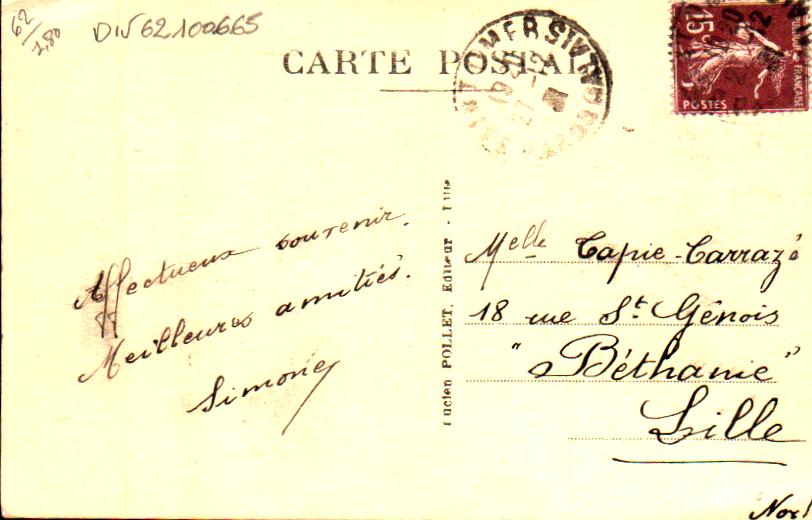 62
1,80
DIV 62.100.665
CARTE POSTALE
15c
POSTES
FRANÇAISE
Affectueux souvenir.
Meilleures amitiés.
Simone
Lucien POLLET, Editeur - Lille
Melle Capie-Carrazé
18 rue St Génois
"Béthanie"
Lille
Nord